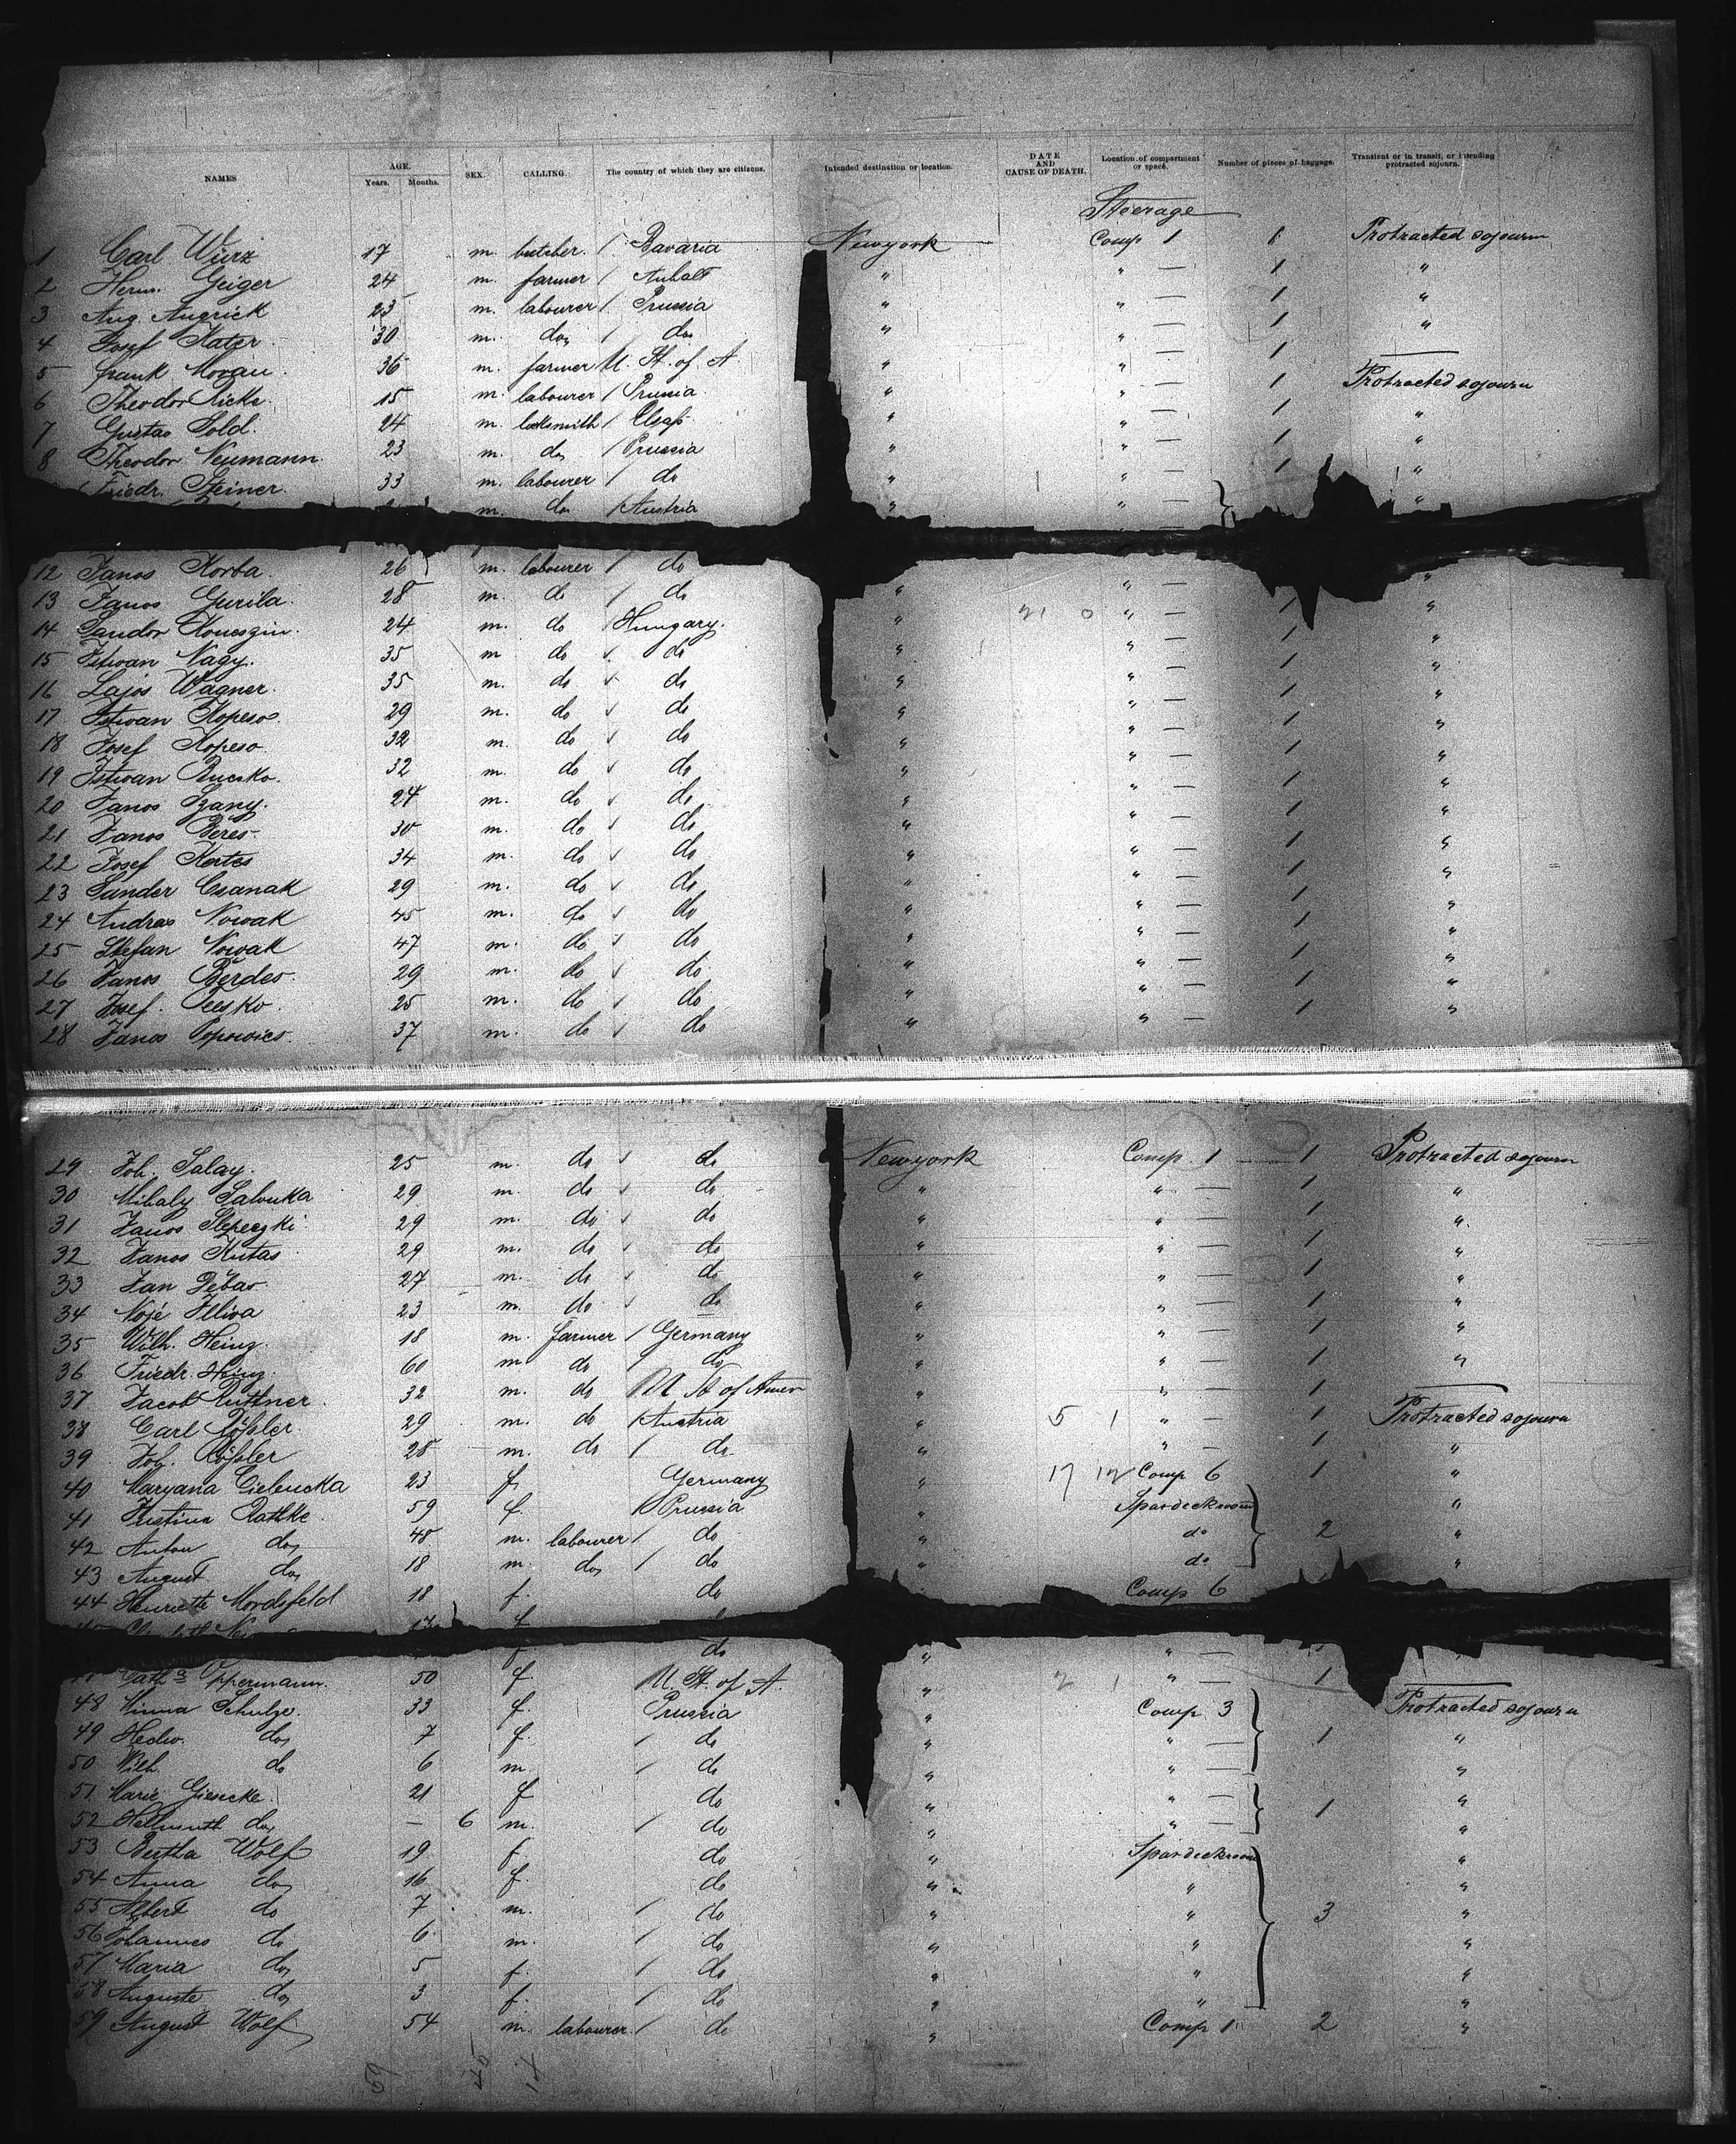 NAMES AGE. Years. Months. SEX. CALLING. The country of which they are citizens. Intended destination or location. DATE AND CAUSE OF DEATH. Location of compartment or space. Number of pieces of baggage. Transient or in transit, or intending protracted sojourn.
Steerage
1 Carl Würz 17 m. butcher. / Bavaria Newyork Comp 1 1 Protracted sojourn
2 Herm. Geiger 24 m. farmer / Anhalt " " — 1 "
3 Aug. Augrick 23 m. labourer / Prussia " " — 1 "
4 Josef Kater 30 m. do / do " " — 1 "
5 Frank Moran. 36 m. farmer U. St. of A " " — 1 —
6 Theodor Ricks. 15 m. labourer / Prussia. " " — 1 Protracted sojourn
7 Gustav Sold. 24 m. locksmith / Elsaß " " — 1 "
8 Theodor Neumann. 23 m. do / Prussia " " — 1 "
Friedr. Steiner. 33 m. labourer / do " " — 1 "
m. do / Austria " " — "
12 Janos Korba. 26 m. labourer / do "
13 Janos Gurila. 28 m. do / do " " — 1 "
14 Sandor 24 m. do / Hungary. " 21 0 " — 1 "
15 Istvan Nagy. 35 m do ✓ do " " — 1 "
16 Lajos Wagner. 35 m. do ✓ do " " — 1 "
17 Istvan Kopeso. 29 m. do ✓ do " " — 1 "
18 Josef Kopeso 32 m. do ✓ do " " — 1 "
19 Istvan Bucsko. 32 m. do ✓ do " " — 1 "
20 Janos Szany. 24 m. do ✓ do " " — 1 "
21 Janos Beres. 30 m. do ✓ do " " — 1 "
22 Josef Kertes 34 m. do ✓ do " " — 1 "
23 Sander Csanak 29 m. do ✓ do " " — 1 "
24 Andras Nowak 45 m. do ✓ do " " — 1 "
25 Stefan Nowak 47 m. do ✓ do " " — 1 "
26 Janos Berdes. 29 m. do ✓ do " " — 1 "
27 Josef. 25 m. do ✓ do " " — 1 "
28 Janos Popovics. 37 m. do ✓ do " " — 1 "
29 Joh. Salay. 25 m. do ✓ do Newyork Comp. 1 1 Protracted sojourn
30 Mihaly 29 m. do ✓ do " " — 1 "
31 Janos 29 m. do ✓ do " " — 1 "
32 Janos Kutas 29 m. do ✓ do " " — 1 "
33 Jan 27 m. do ✓ do " " — 1 "
34 23 m. do ✓ do " " — 1 "
35 Wilh. Heinz. 18 m. farmer / Germany " " — 1 "
36 Friedr. Heinz. 60 m do / do " " — 1 "
37 Jacob Ruttner. 32 m. do U St of Amer " " — 1 —
38 Carl Rößler. 29 m. do / Austria " 5 1 " — 1 Protracted sojourn
39 Joh. Rößler 28 m. do / do " " — 1 "
40 Maryana 23 f. Germany " 17 Comp 6 1 "
41 Justina Rathke. 59 f. Prussia " Spardeckroom "
42 Anton do 48 m. labourer / do " do 2 "
43 August do 18 m. do / do " do "
44 Henriette Mordsfeld 18 f. do " Comp 6
f do " " —
Cath. Oppermann. 50 f. U. St. of A. " 2 1 " — 1 —
48 Minna Schulze. 33 f. Prussia " Comp. 3 Protracted sojourn
49 Hedw. do 7 f. / do " " — 1 "
50 Wilh. do 6 m. / do " " — "
51 Marie Giesecke. 21 f do " " — "
52 Hellmuth do — 6 m. / do " " — 1 "
53 Bertha Wolf 19 f. do " Spardeckroom "
54 Anna do 16 f. do " " "
55 Albert do 7 m. / do " " 3 "
56 Johannes do 6 m. / do " " "
57 Maria do 5 f. / do " " "
58 Auguste do 3 f. / do " " "
59 August Wolf 54 m. labourer. / do " Comp 1 2 "
59 45 14